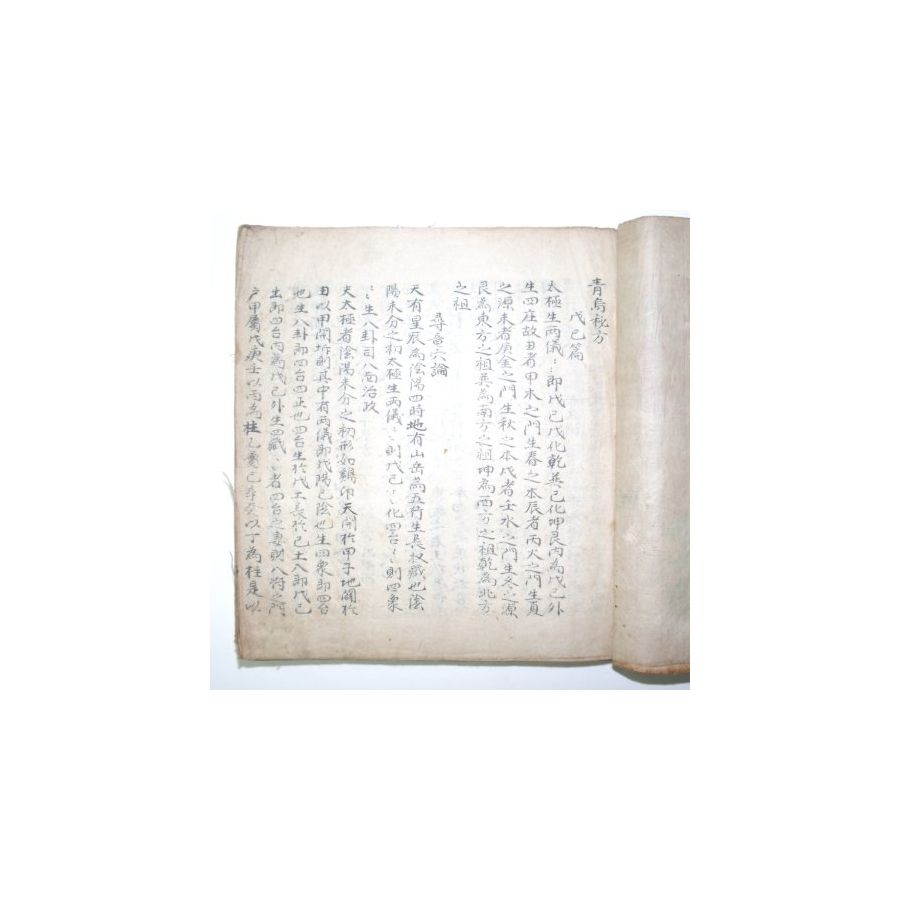 青烏秘方
戊己篇
太極生兩儀〻即戊己戊化乾巽己化坤艮內為戊己外
生四庫故丑者甲木之門生春之本辰者丙火之門生夏
之源未者庚金之門生秋之本戌者壬水之門生冬之源
艮為東方之祖巽為南方之祖坤為西方之祖乾為北方
之祖
尋竜六論
天有星辰為陰陽四時地有山岳為五行生長收藏也陰
陽未分之初太極生兩儀〻則戊己〻化四台〻則四象
〻生八卦司八局治政
夫太極者陰陽未分之初形如鷄卵天開於甲子地闢於
丑以甲開坼則其中有兩儀即戊陽己陰也生四象即四台
也生八卦即四台四正也四台生於戊土長於己土八即戊己
出即四台內為戊己外生四藏〻者四台之妻財八將之門
戶甲屬戊庚壬以丙為柱乙屬己辛癸以丁為柱是以